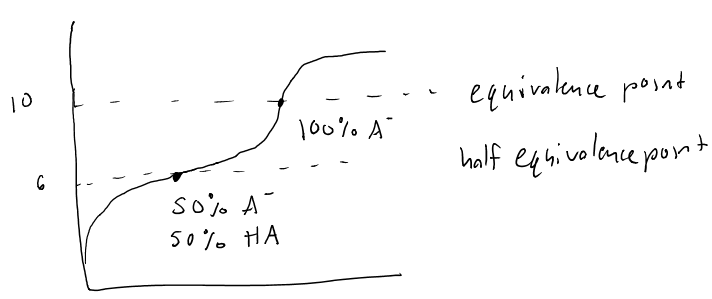 10
equivalence point
100% A⁻
half equivalence point
6
50% A⁻
50% HA